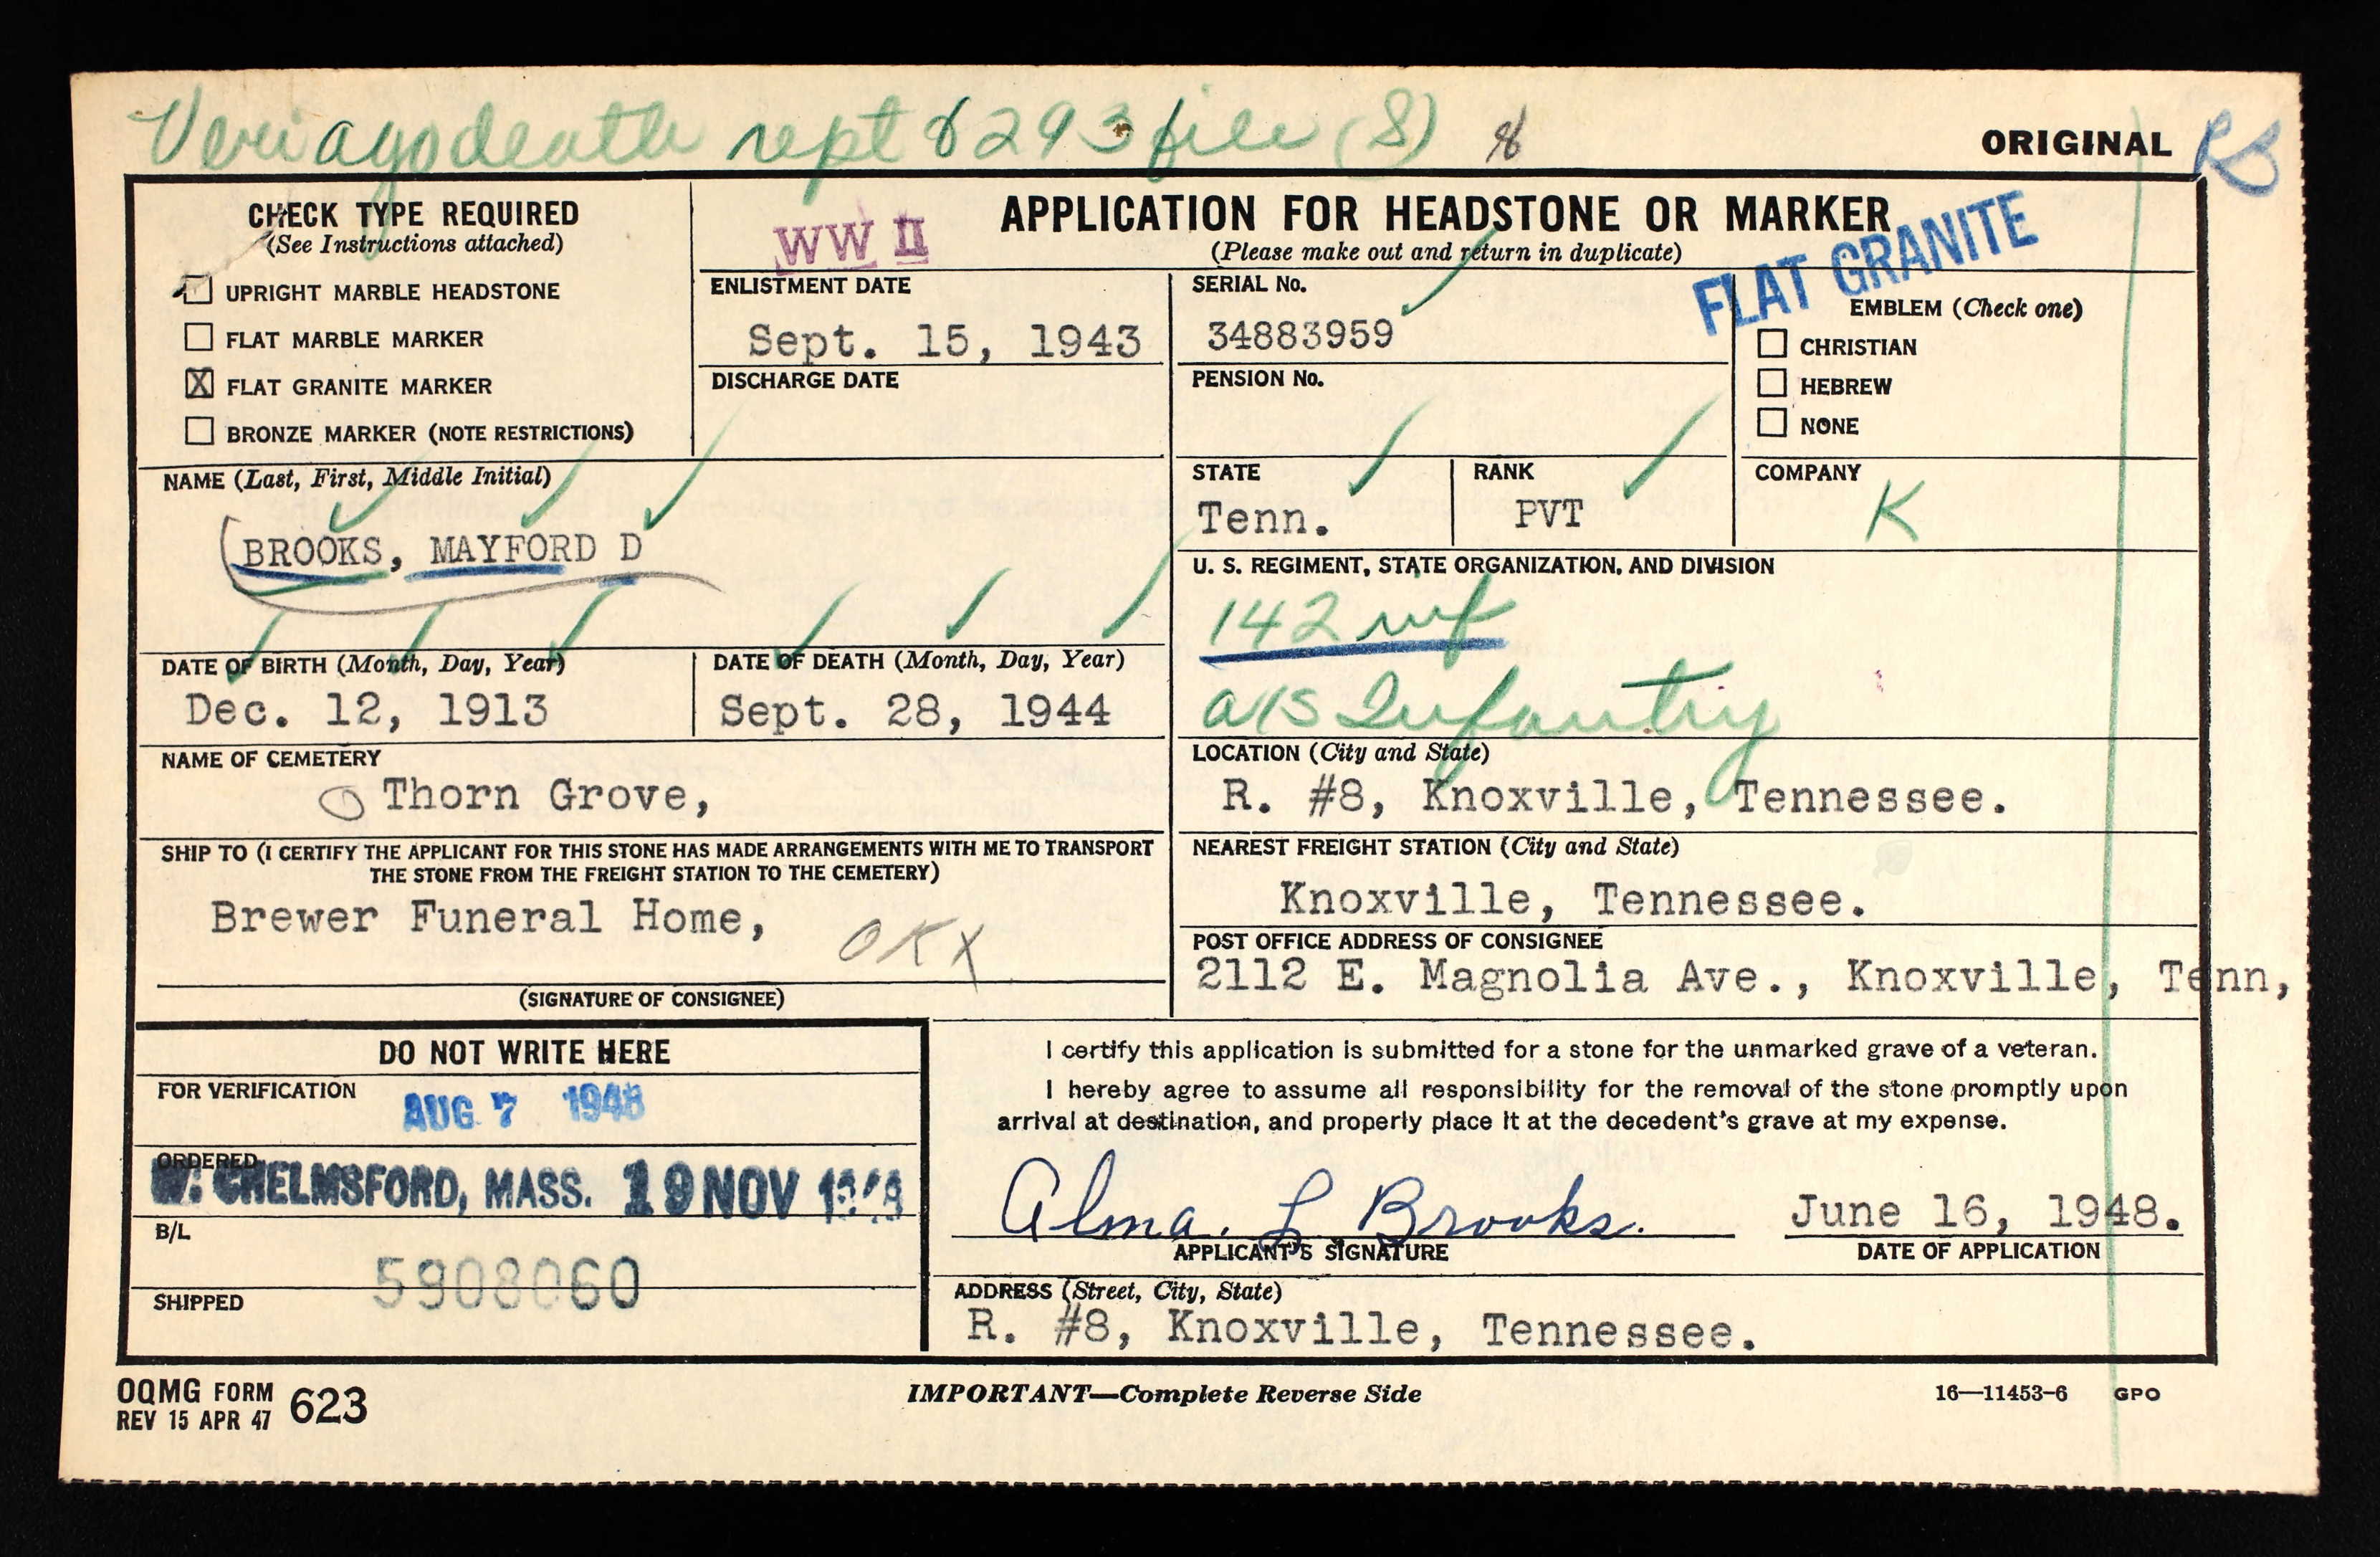 Veri ago death rept 8293 file (S)
ORIGINAL RB
CHECK TYPE REQUIRED
(See Instructions attached)
UPRIGHT MARBLE HEADSTONE
FLAT MARBLE MARKER
X FLAT GRANITE MARKER
BRONZE MARKER (NOTE RESTRICTIONS)
WW II
APPLICATION FOR HEADSTONE OR MARKER
(Please make out and return in duplicate)
FLAT GRANITE
ENLISTMENT DATE
Sept. 15, 1943
DISCHARGE DATE
SERIAL No.
34883959
PENSION No.
EMBLEM (Check one)
CHRISTIAN
HEBREW
NONE
NAME (Last, First, Middle Initial)
BROOKS, MAYFORD D
STATE
Tenn.
RANK
PVT
COMPANY
K
U. S. REGIMENT, STATE ORGANIZATION, AND DIVISION
142 inf
a/s Infantry
DATE OF BIRTH (Month, Day, Year)
Dec. 12, 1913
DATE OF DEATH (Month, Day, Year)
Sept. 28, 1944
NAME OF CEMETERY
Thorn Grove,
LOCATION (City and State)
R. #8, Knoxville, Tennessee.
SHIP TO (I CERTIFY THE APPLICANT FOR THIS STONE HAS MADE ARRANGEMENTS WITH ME TO TRANSPORT
THE STONE FROM THE FREIGHT STATION TO THE CEMETERY)
Brewer Funeral Home,
OKX
(SIGNATURE OF CONSIGNEE)
NEAREST FREIGHT STATION (City and State)
Knoxville, Tennessee.
POST OFFICE ADDRESS OF CONSIGNEE
2112 E. Magnolia Ave., Knoxville, Tenn,
DO NOT WRITE HERE
FOR VERIFICATION
AUG 7 1948
ORDERED
W. CHELMSFORD, MASS. 19 NOV 1948
B/L
5908060
SHIPPED
I certify this application is submitted for a stone for the unmarked grave of a veteran.
I hereby agree to assume all responsibility for the removal of the stone promptly upon
arrival at destination, and properly place it at the decedent's grave at my expense.
Alma. L Brooks.
APPLICANT'S SIGNATURE
June 16, 1948.
DATE OF APPLICATION
ADDRESS (Street, City, State)
R. #8, Knoxville, Tennessee.
OQMG FORM 623
REV 15 APR 47
IMPORTANT—Complete Reverse Side
16—11453-6 GPO